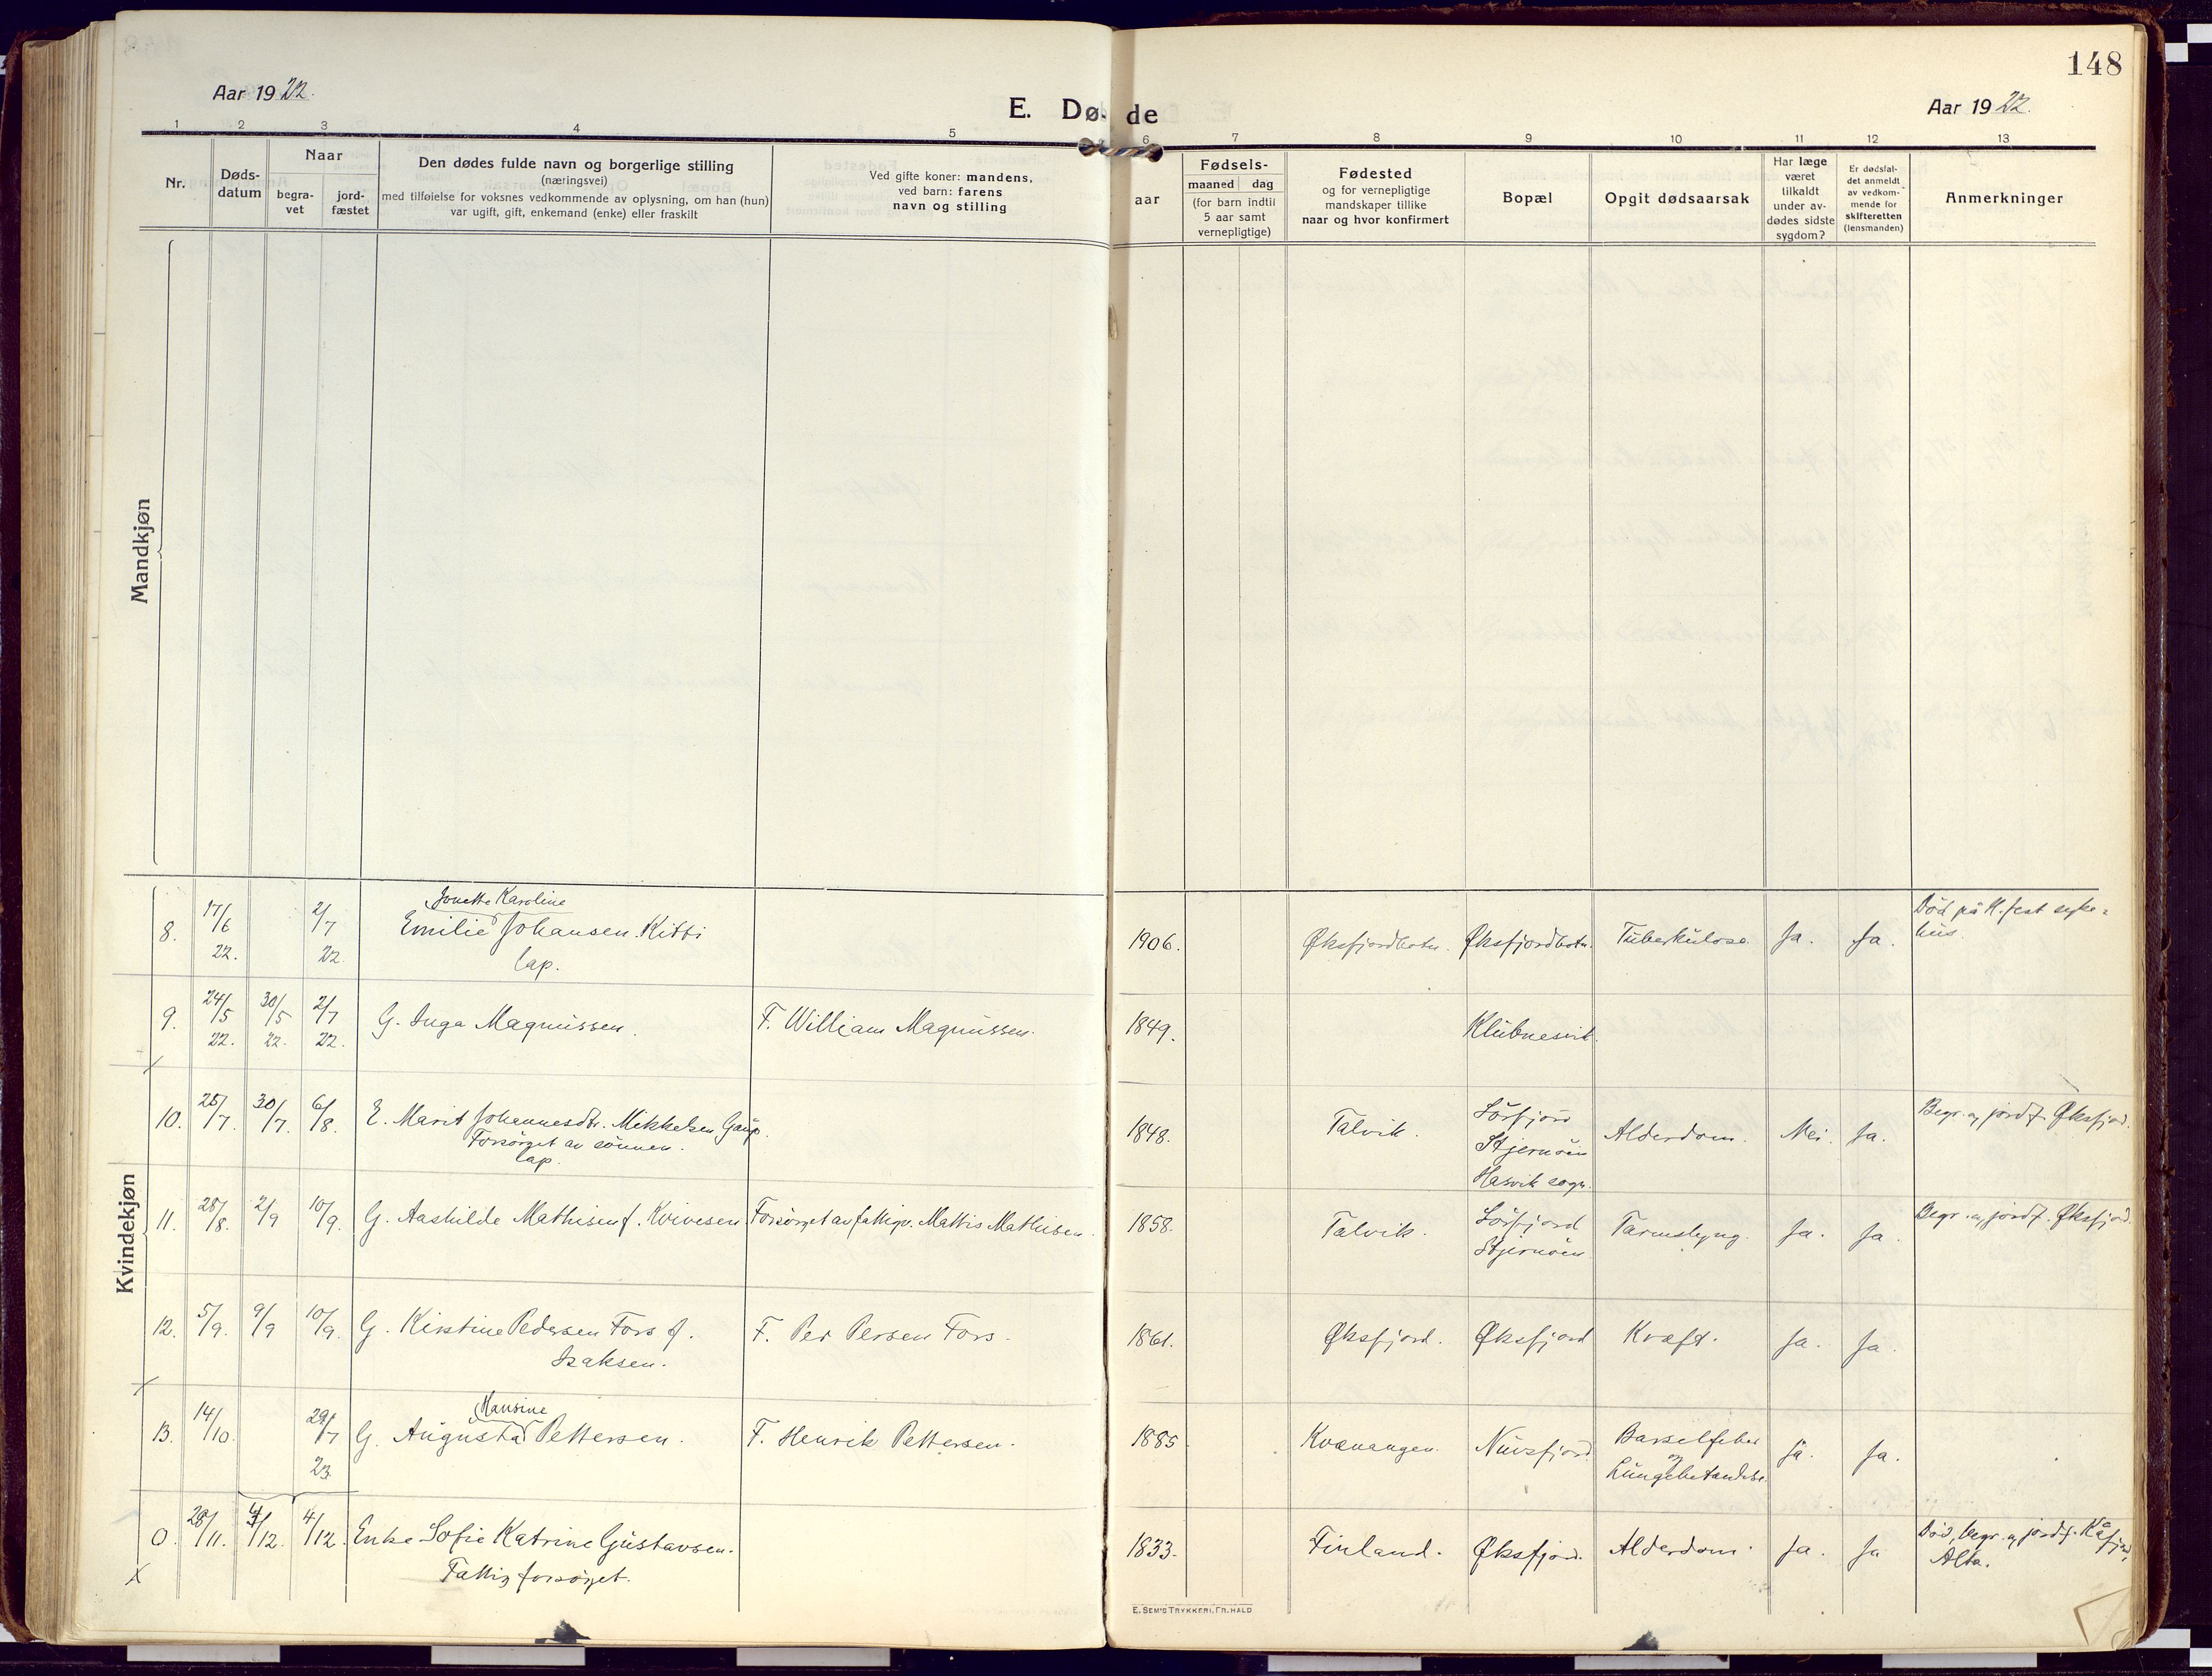 148
Aar 1922.
E. Dø de
Aar 1922.
1 2 3 4 5 6 7 8 9 10 11 12 13
Nr.
Døds-
datum
Naar
begra-
vet
jord-
fæstet
Den dødes fulde navn og borgerlige stilling
(næringsvei)
med tilføielse for voksnes vedkommende av oplysning, om han (hun)
var ugift, gift, enkemand (enke) eller fraskilt
Ved gifte koner: mandens,
ved barn: farens
navn og stilling
aar
Fødsels-
maaned dag
(for barn indtil
5 aar samt
vernepligtige)
Fødested
og for vernepligtige
mandskaper tillike
naar og hvor konfirmert
Bopæl
Opgit dødsaarsak
Har læge
været
tilkaldt
under av-
dødes sidste
sygdom?
Er dødsfal-
det anmeldt
av vedkom-
mende for
skifteretten
(lensmanden)
Anmerkninger
Mandkjøn
Kvindekjøn
Jonette Karoline
8. 17/6 22. 2/7 22. Emilie Johansen Kitti 1906. Øksfjordbotn. Øksfjordbotn. Tuberkulose. Ja. Ja. Död på H.fest syke=
hus.
lap.
9. 24/5 22. 30/5 22. 2/7 22. G. Inga Magnussen. F. William Magnussen. 1849. Klubnesvik.
10. 25/7. 30/7. 6/8. E. Marit Johannesdtr. Mikkelsen Gaup. 1848. Talvik. Sörfjord Alderdom. Nei. Ja. Begr. og jordf. Øksfjord.
Forsörget av sönnen. Stjernöen
lap. Hasvik sogn.
11. 28/8. 2/9 10/9. G. Aashilde Mathisen f. Kvivesen. Forsörget av fattigv. Mattis Mathisen. 1858. Talvik. Sörfjord Tarmslyng. Ja. Ja. Begr. og jordf. Øksfjord.
Stjernöen
12. 5/9. 9/9 10/9. G. Kirstine Pedersen Fors f. F. Per Persen Fors. 1861. Øksfjord. Øksfjord Kræft. Ja. Ja.
Isaksen.
Hansine
13. 14/10. 29/7 23. G. Augusta Pettersen. F. Henrik Pettersen. 1885 Kvænangen. Nuvsfjord Barselfeber Ja. Ja.
og
Lungebetændelse
0. 28/11. 4/12. 4/12. Enke Sofie Katrine Gustavsen. 1833. Finland. Øksfjord. Alderdom. Ja. Ja Död, begr. og jordf. Kåfjord,
Fattigforsörget. Alta.
E. Sem's Trykkeri, Fr.hald